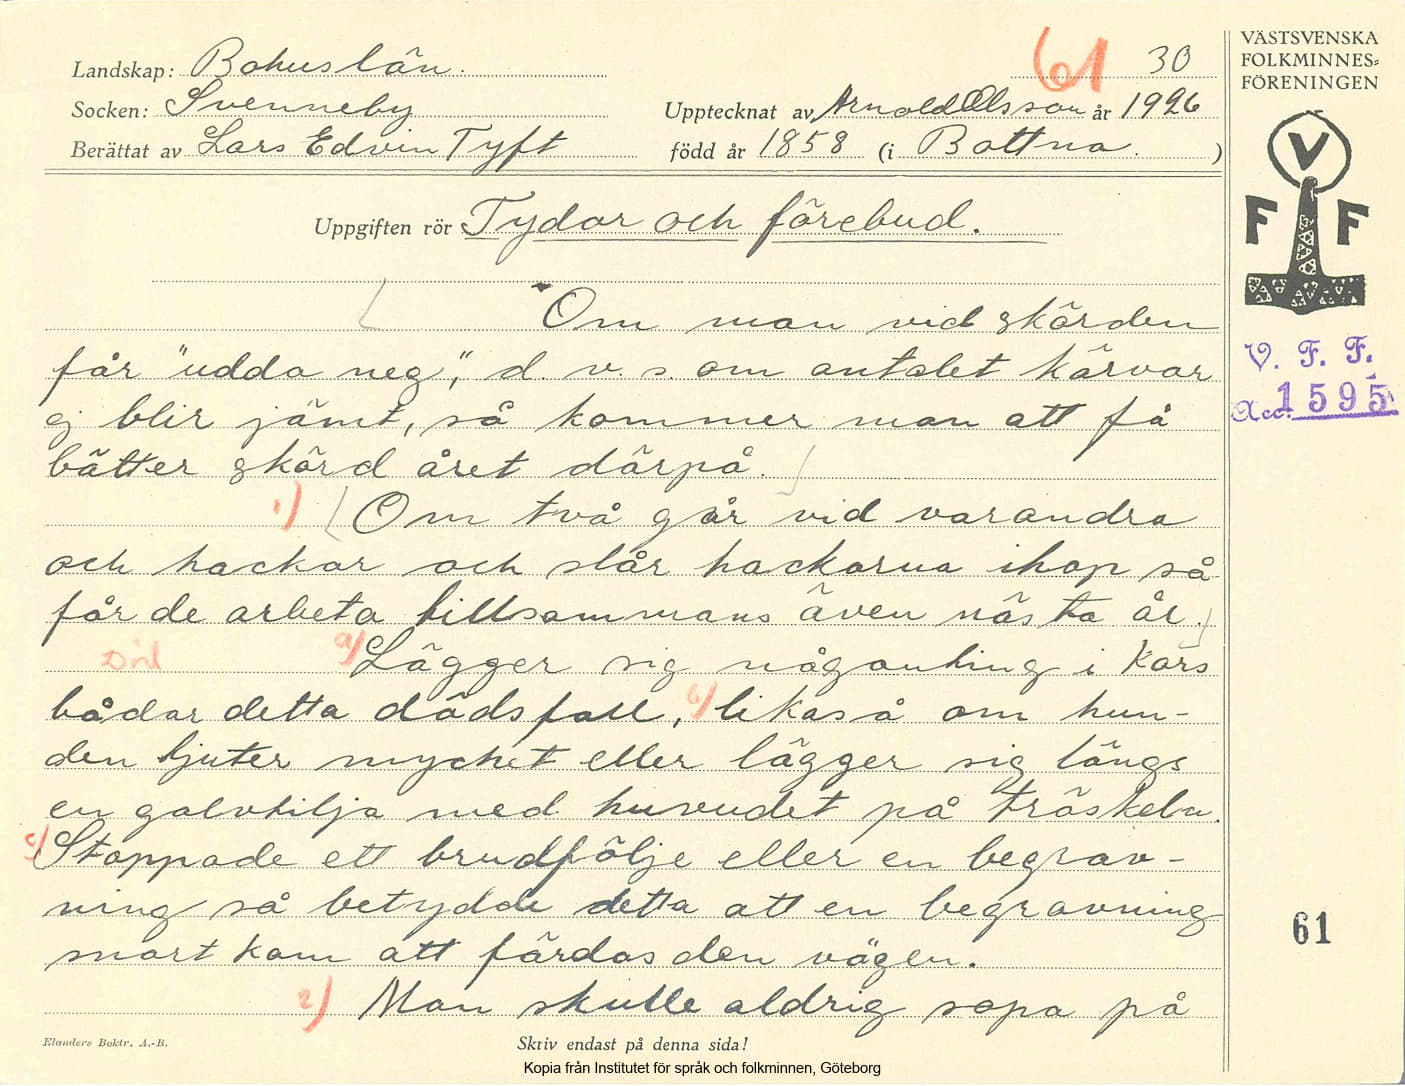 Landskap: Bohuslän. 61 30
Socken: Svenneby Upptecknat av Arnold Olsson år 1926
Berättat av Lars Edvin Tyft född år 1858 (i Bottna. )
Uppgiften rör Tydor och förebud.
Om man vid skörden
får "udda neg", d. v. s. om antalet kärvar
ej blir jämt, så kommer man att få
bätter skörd året därpå.
1) Om två går vid varandra
och hackar och slår hackorna ihop så
får de arbeta tillsammans även nästa år.
Död a) Lägger sig någonting i kors
bådar detta dödsfall, b) likaså om hun-
den tjuter mycket eller lägger sig längs
en golvtilja med huvudet på tröskeln.
c) Stoppade ett brudfölje eller en begrav-
ning så betydde detta att en begravning
snart kom att färdas den vägen.
2) Man skulle aldrig sopa på
Elanders Boktr. A.-B. Skriv endast på denna sida!
Kopia från Institutet för språk och folkminnen, Göteborg
VÄSTSVENSKA
FOLKMINNES=
FÖRENINGEN
V
F F
V. F. F.
Acc. 1595
61